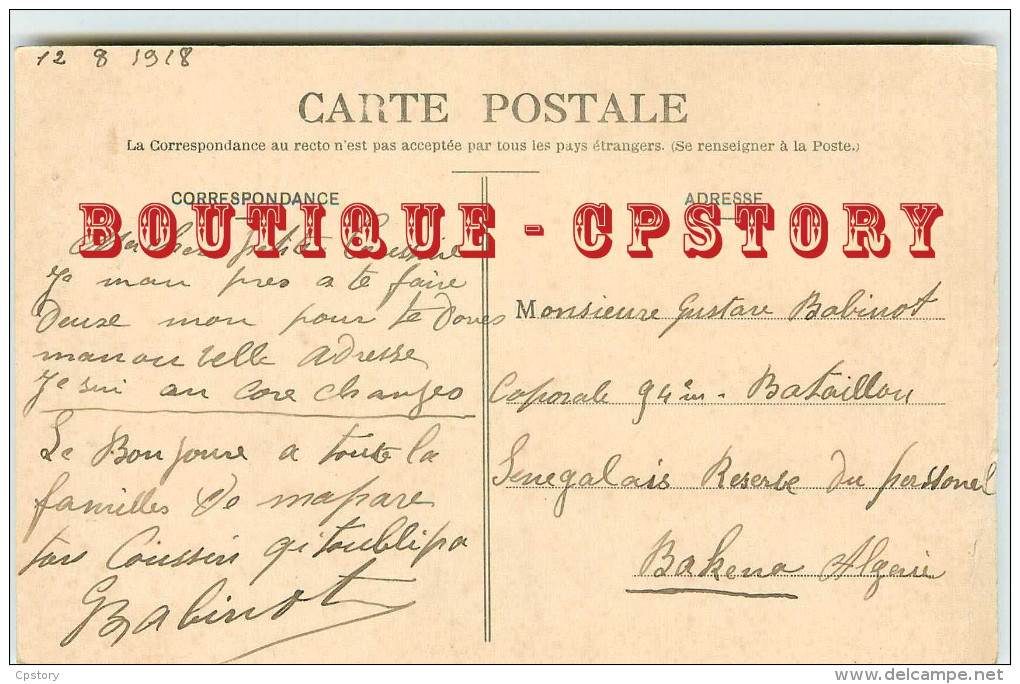 12 8 1918
CARTE POSTALE
La Correspondance au recto n'est pas acceptée par tous les pays étrangers. (Se renseigner à la Poste.)
CORRESPONDANCE
ADRESSE
BOUTIQUE - CPSTORY
petit
Je man pres a te faire
Deuse mon pour te Dones
manou velle adresse
Je sui an core changeo
Le Bonjoure a toute la
familles De mapare
ton Coussin qitoublipa
GBabinot
Monsieure Gustave Babinot
Caporale 94em Bataillon
Senegalais Reserve Du personel
Bakena Algerie
Cpstory
www.delcampe.net